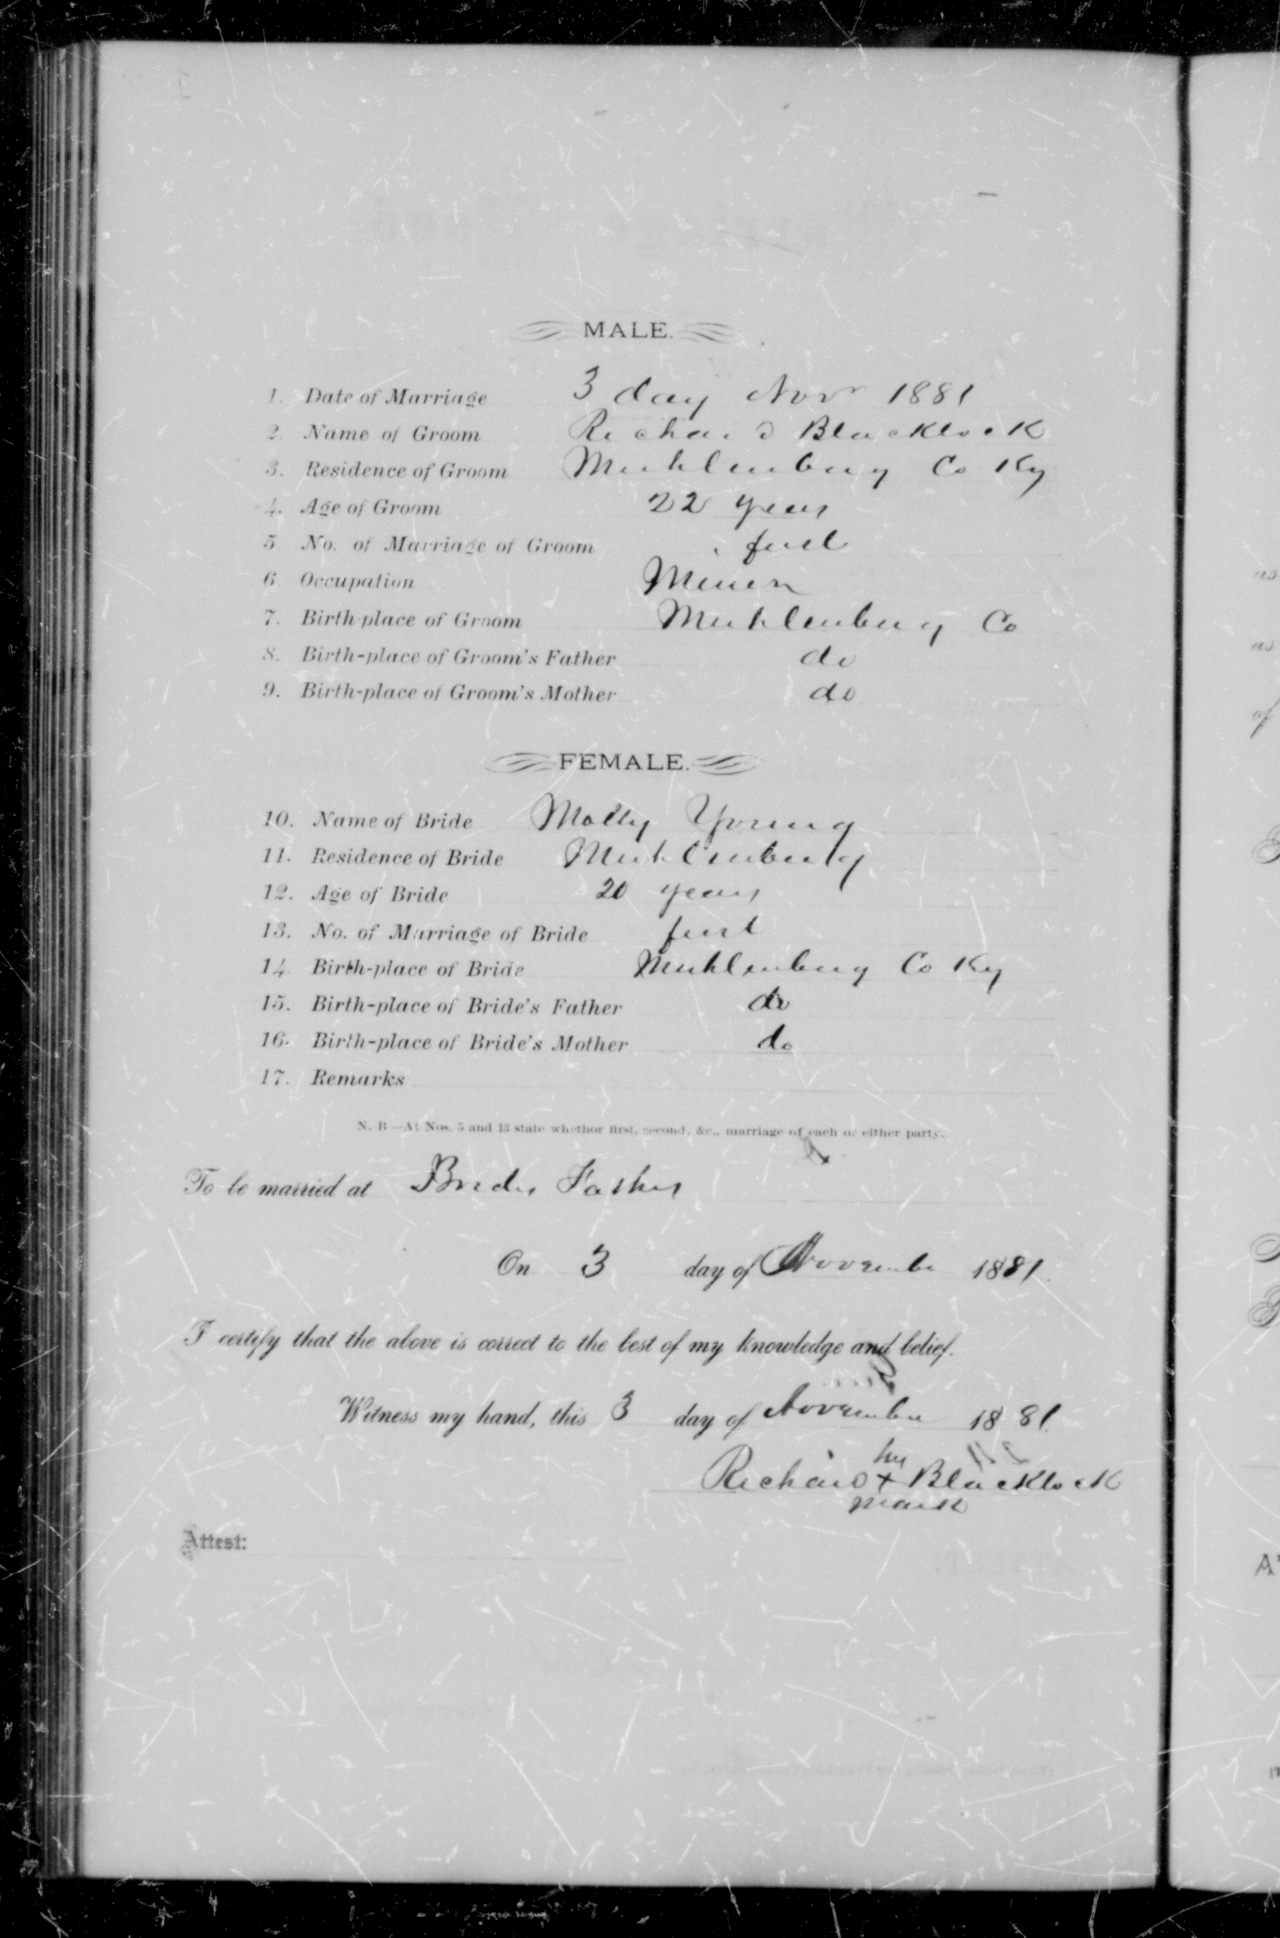 MALE.
1. Date of Marriage 3 day Nov 1881
2. Name of Groom Richard Blacklock
3. Residence of Groom Muhlenburg Co Ky
4. Age of Groom 22 years
5 No. of Marriage of Groom first
6 Occupation Miner
7. Birth-place of Groom Muhlenburg Co
8. Birth-place of Groom's Father do
9. Birth-place of Groom's Mother do
FEMALE.
10. Name of Bride Molly Young
11. Residence of Bride Muhlenburg
12. Age of Bride 20 years
13. No. of Marriage of Bride first
14 Birth-place of Bride Muhlenburg Co Ky
15. Birth-place of Bride's Father do
16. Birth-place of Bride's Mother do
17. Remarks
N. B—At Nos. 5 and 13 state whethor first, second, &c., marriage of each or either party.
To be married at Brides Fathers
On 3 day of November 1881.
I certify that the above is correct to the best of my knowledge and belief.
Witness my hand, this 3 day of November 1881
his
Richard + Blacklock
mark
Attest: